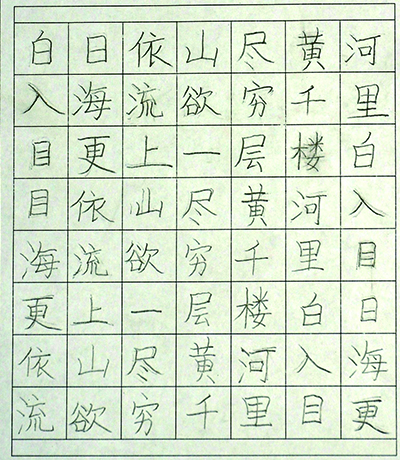 白日依山尽黄河
入海流欲穷千里
目更上一层楼白
目依山尽黄河入
海流欲穷千里目
更上一层楼白日
依山尽黄河入海
流欲穷千里目更